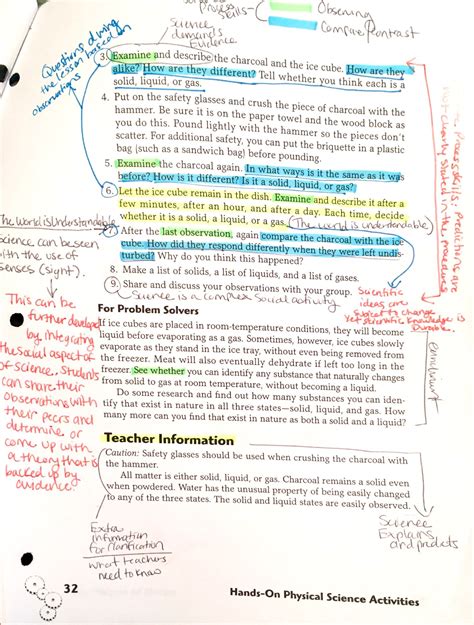 Process
skills-
Observing
Compare/contrast
Science
demands
Evidence
Questions during
the lesson based on
observations
3. Examine and describe the charcoal and the ice cube. How are they
alike? How are they different? Tell whether you think each is a
solid, liquid, or gas.
4. Put on the safety glasses and crush the piece of charcoal with the
hammer. Be sure it is on the paper towel and the wood block as
you do this. Pound lightly with the hammer so the pieces don't
scatter. For additional safety, you can put the briquette in a plastic
bag (such as a sandwich bag) before pounding.
5. Examine the charcoal again. In what ways is it the same as it was
before? How is it different? Is it a solid, liquid, or gas?
6. Let the ice cube remain in the dish. Examine and describe it after a
few minutes, after an hour, and after a day. Each time, decide
whether it is a solid, a liquid, or a gas. (The world is understandable)
7. After the last observation, again compare the charcoal with the ice
cube. How did they respond differently when they were left undis-
turbed? Why do you think this happened?
8. Make a list of solids, a list of liquids, and a list of gases.
9. Share and discuss your observations with your group.
Science is a complex social activity
The World is Understandable
Science can be seen
with the use of
senses (sight).
This can be
further developed
by integrating
the social aspect of
of science, Students
can share their
observations with
their peers and
determine or
come up with
a theory that is
backed up by
evidence
process skills: Predictions are
not clearly stated in the procedures
Scientific
ideas are
subject to change
yet scientific knowledge is
Durable.
enrichment
For Problem Solvers
If ice cubes are placed in room-temperature conditions, they will become
liquid before evaporating as a gas. Sometimes, however, ice cubes slowly
evaporate as they stand in the ice tray, without even being removed from
the freezer. Meat will also eventually dehydrate if left too long in the
freezer. See whether you can identify any substance that naturally changes
from solid to gas at room temperature, without becoming a liquid.
Do some research and find out how many substances you can iden-
tify that exist in nature in all three states—solid, liquid, and gas. How
many more can you find that exist in nature as both a solid and a liquid?
Teacher Information
Caution: Safety glasses should be used when crushing the charcoal with
the hammer.
All matter is either solid, liquid, or gas. Charcoal remains a solid even
when powdered. Water has the unusual property of being easily changed
to any of the three states. The solid and liquid states are easily observed.
Extra
Information
for clarification
what teachers
need to know
Science
Explains
and predicts
32
Hands-On Physical Science Activities